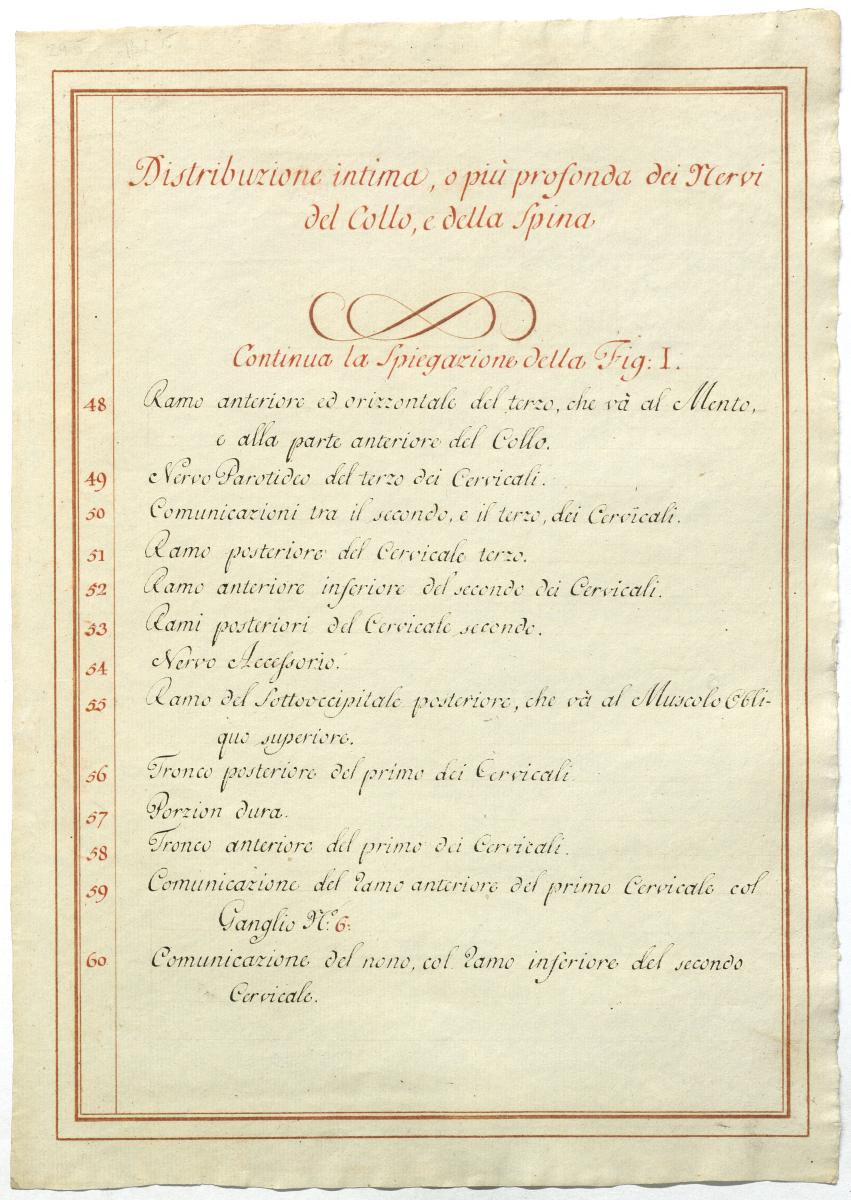 Distribuzione intima, o più profonda dei Nervi
del Collo, e della Spina
Continua la Spiegazione della Fig: I.
48 Ramo anteriore ed orizzontale del terzo, che và al Mento,
e alla parte anteriore del Collo.
49 Nervo Parotideo del terzo dei Cervicali.
50 Comunicazioni tra il secondo, e il terzo, dei Cervicali.
51 Ramo posteriore del Cervicale terzo.
52 Ramo anteriore inferiore del secondo dei Cervicali.
53 Rami posteriori del Cervicale secondo.
54 Nervo Accessorio.
55 Ramo del Sottoccipitale posteriore, che và al Muscolo Obli-
quo superiore.
56 Tronco posteriore del primo dei Cervicali.
57 Porzion dura.
58 Tronco anteriore del primo dei Cervicali.
59 Comunicazione del Ramo anteriore del primo Cervicale col
Ganglio N.º 6.
60 Comunicazione del nono, col Ramo inferiore del secondo
Cervicale.